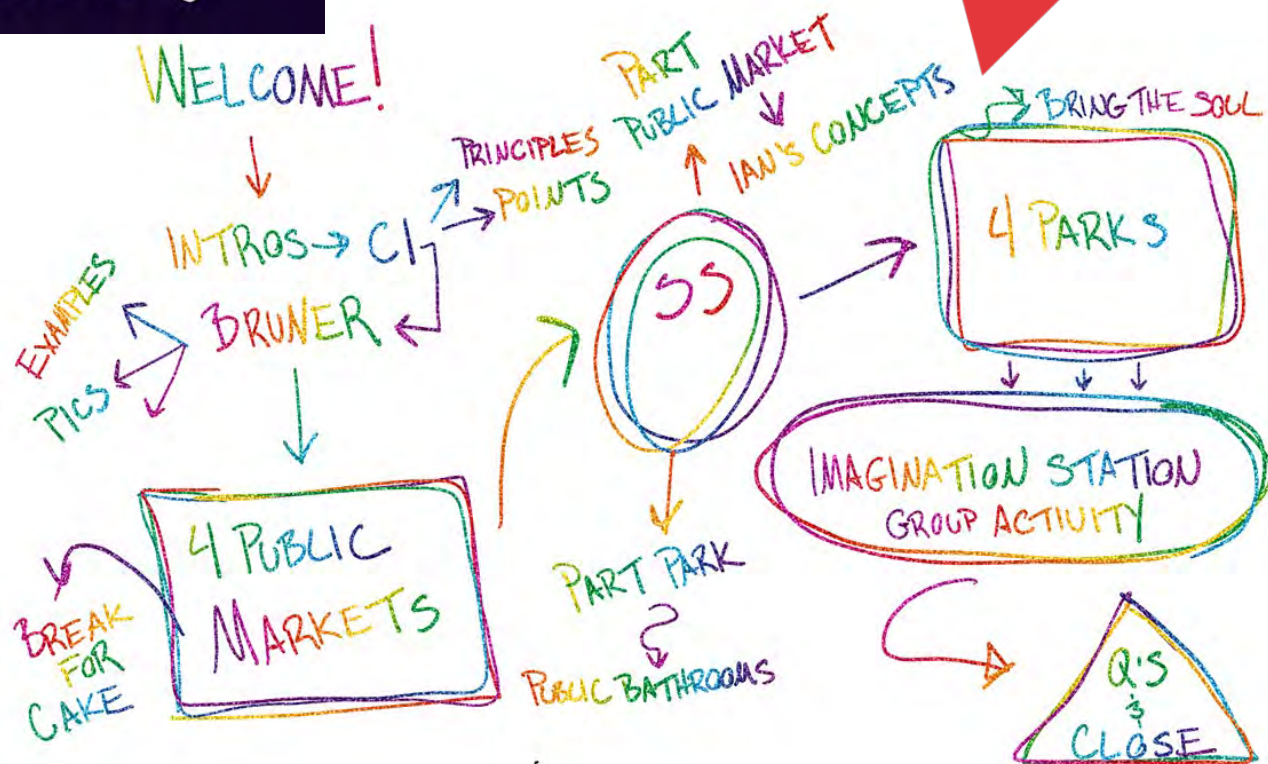 WELCOME!
INTROS → CI
PRINCIPLES
POINTS
BRUNER
EXAMPLES
PICS
4 PUBLIC
MARKETS
BREAK
FOR
CAKE
SS
PART
PUBLIC MARKET
IAN'S CONCEPTS
PART PARK
PUBLIC BATHROOMS
BRING THE SOUL
4 PARKS
IMAGINATION STATION
GROUP ACTIVITY
Q'S
&
CLOSE